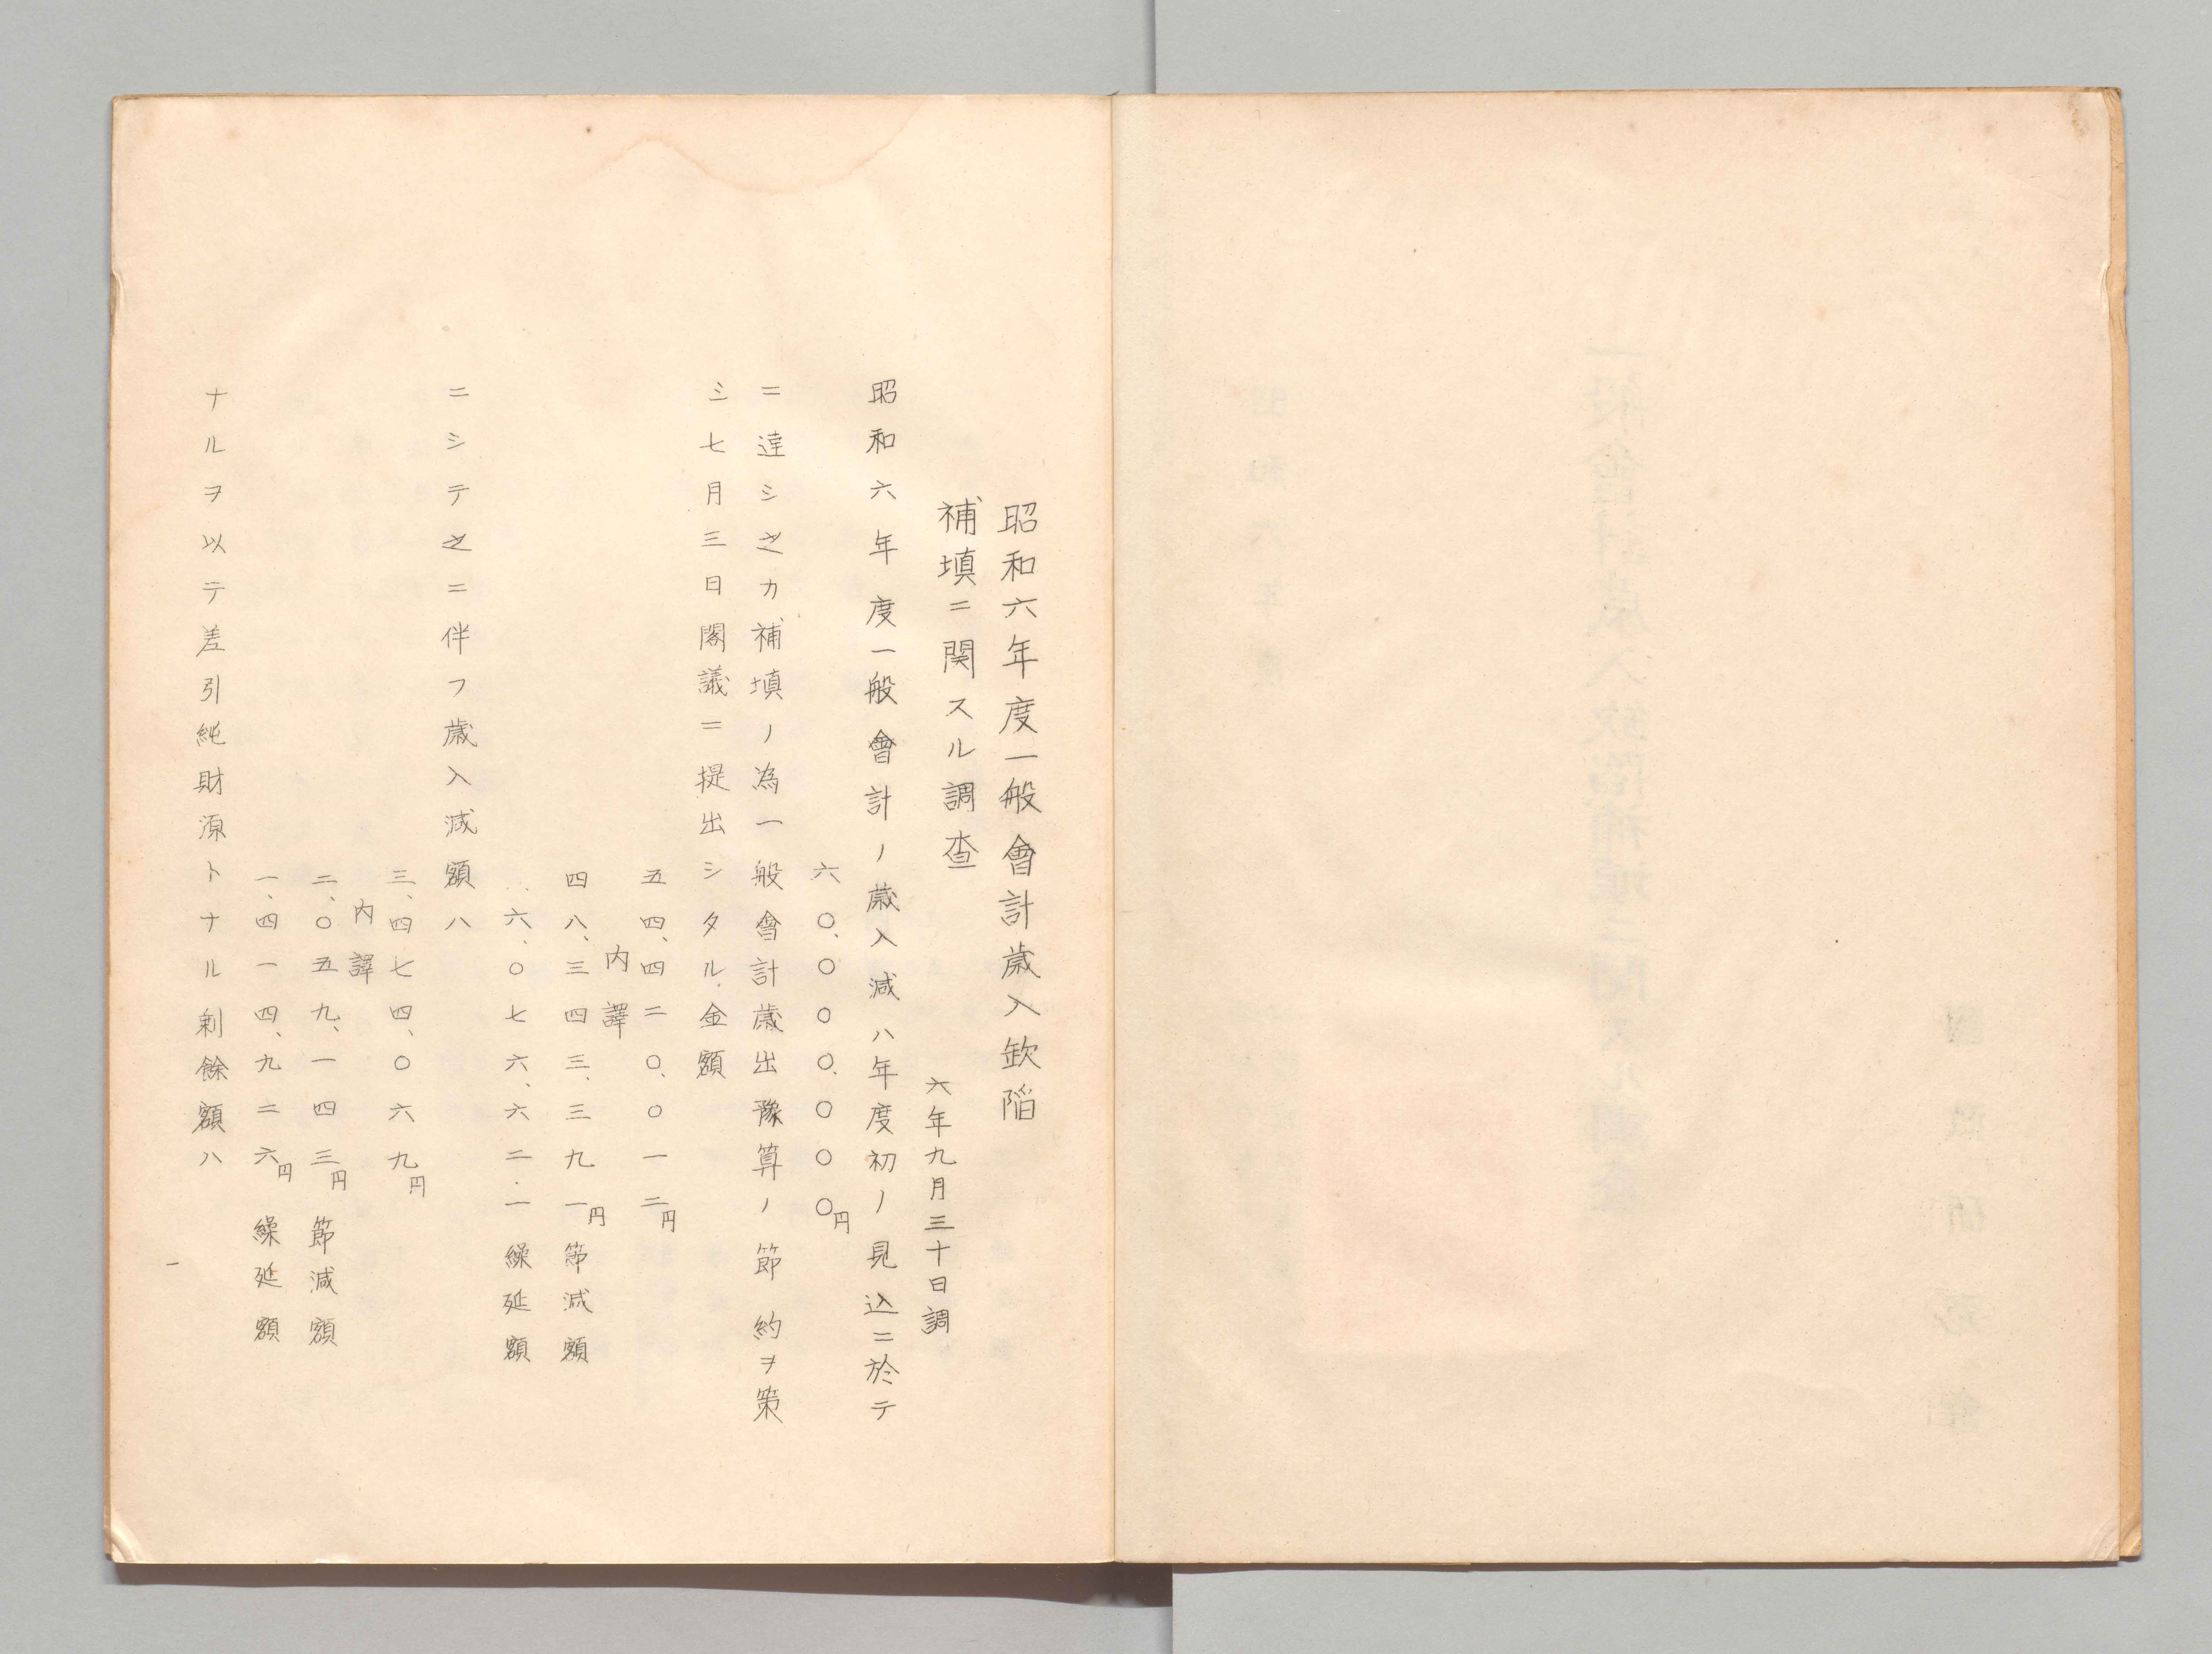 昭和六年度一般會計歳入欽陥
補填ニ関スル調査
六年九月三十日調
昭和六年度一般會計ノ歳入減ハ年度初ノ見込ニ於テ
六〇、〇〇〇、〇〇〇円
ニ達シ之カ補填ノ為一般會計歳出豫算ノ節約ヲ策
シ七月三日閣議ニ提出シタル金額
五四、四二〇、〇一二円
内譯
四八、三四三、三九一円 節減額
六、〇七六、六二一 繰延額
ニシテ之ニ伴フ歳入減額ハ
三、四七四、〇六九円
内譯
二、〇五九、一四三円 節減額
一、四一四、九二六円 繰延額
ナルヲ以テ差引純財源トナル剰餘額ハ
一